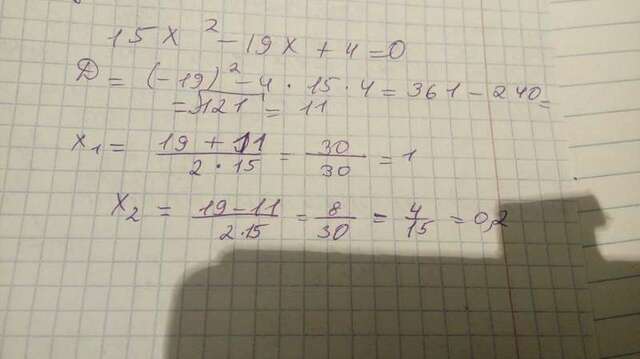 15x² - 19x + 4 = 0
D = (-19)² - 4 · 15 · 4 = 361 - 240 =
= √121 = 11
x₁ = (19 + 11)/(2 · 15) = 30/30 = 1
x₂ = (19 - 11)/(2·15) = 8/30 = 4/15 = 0,2